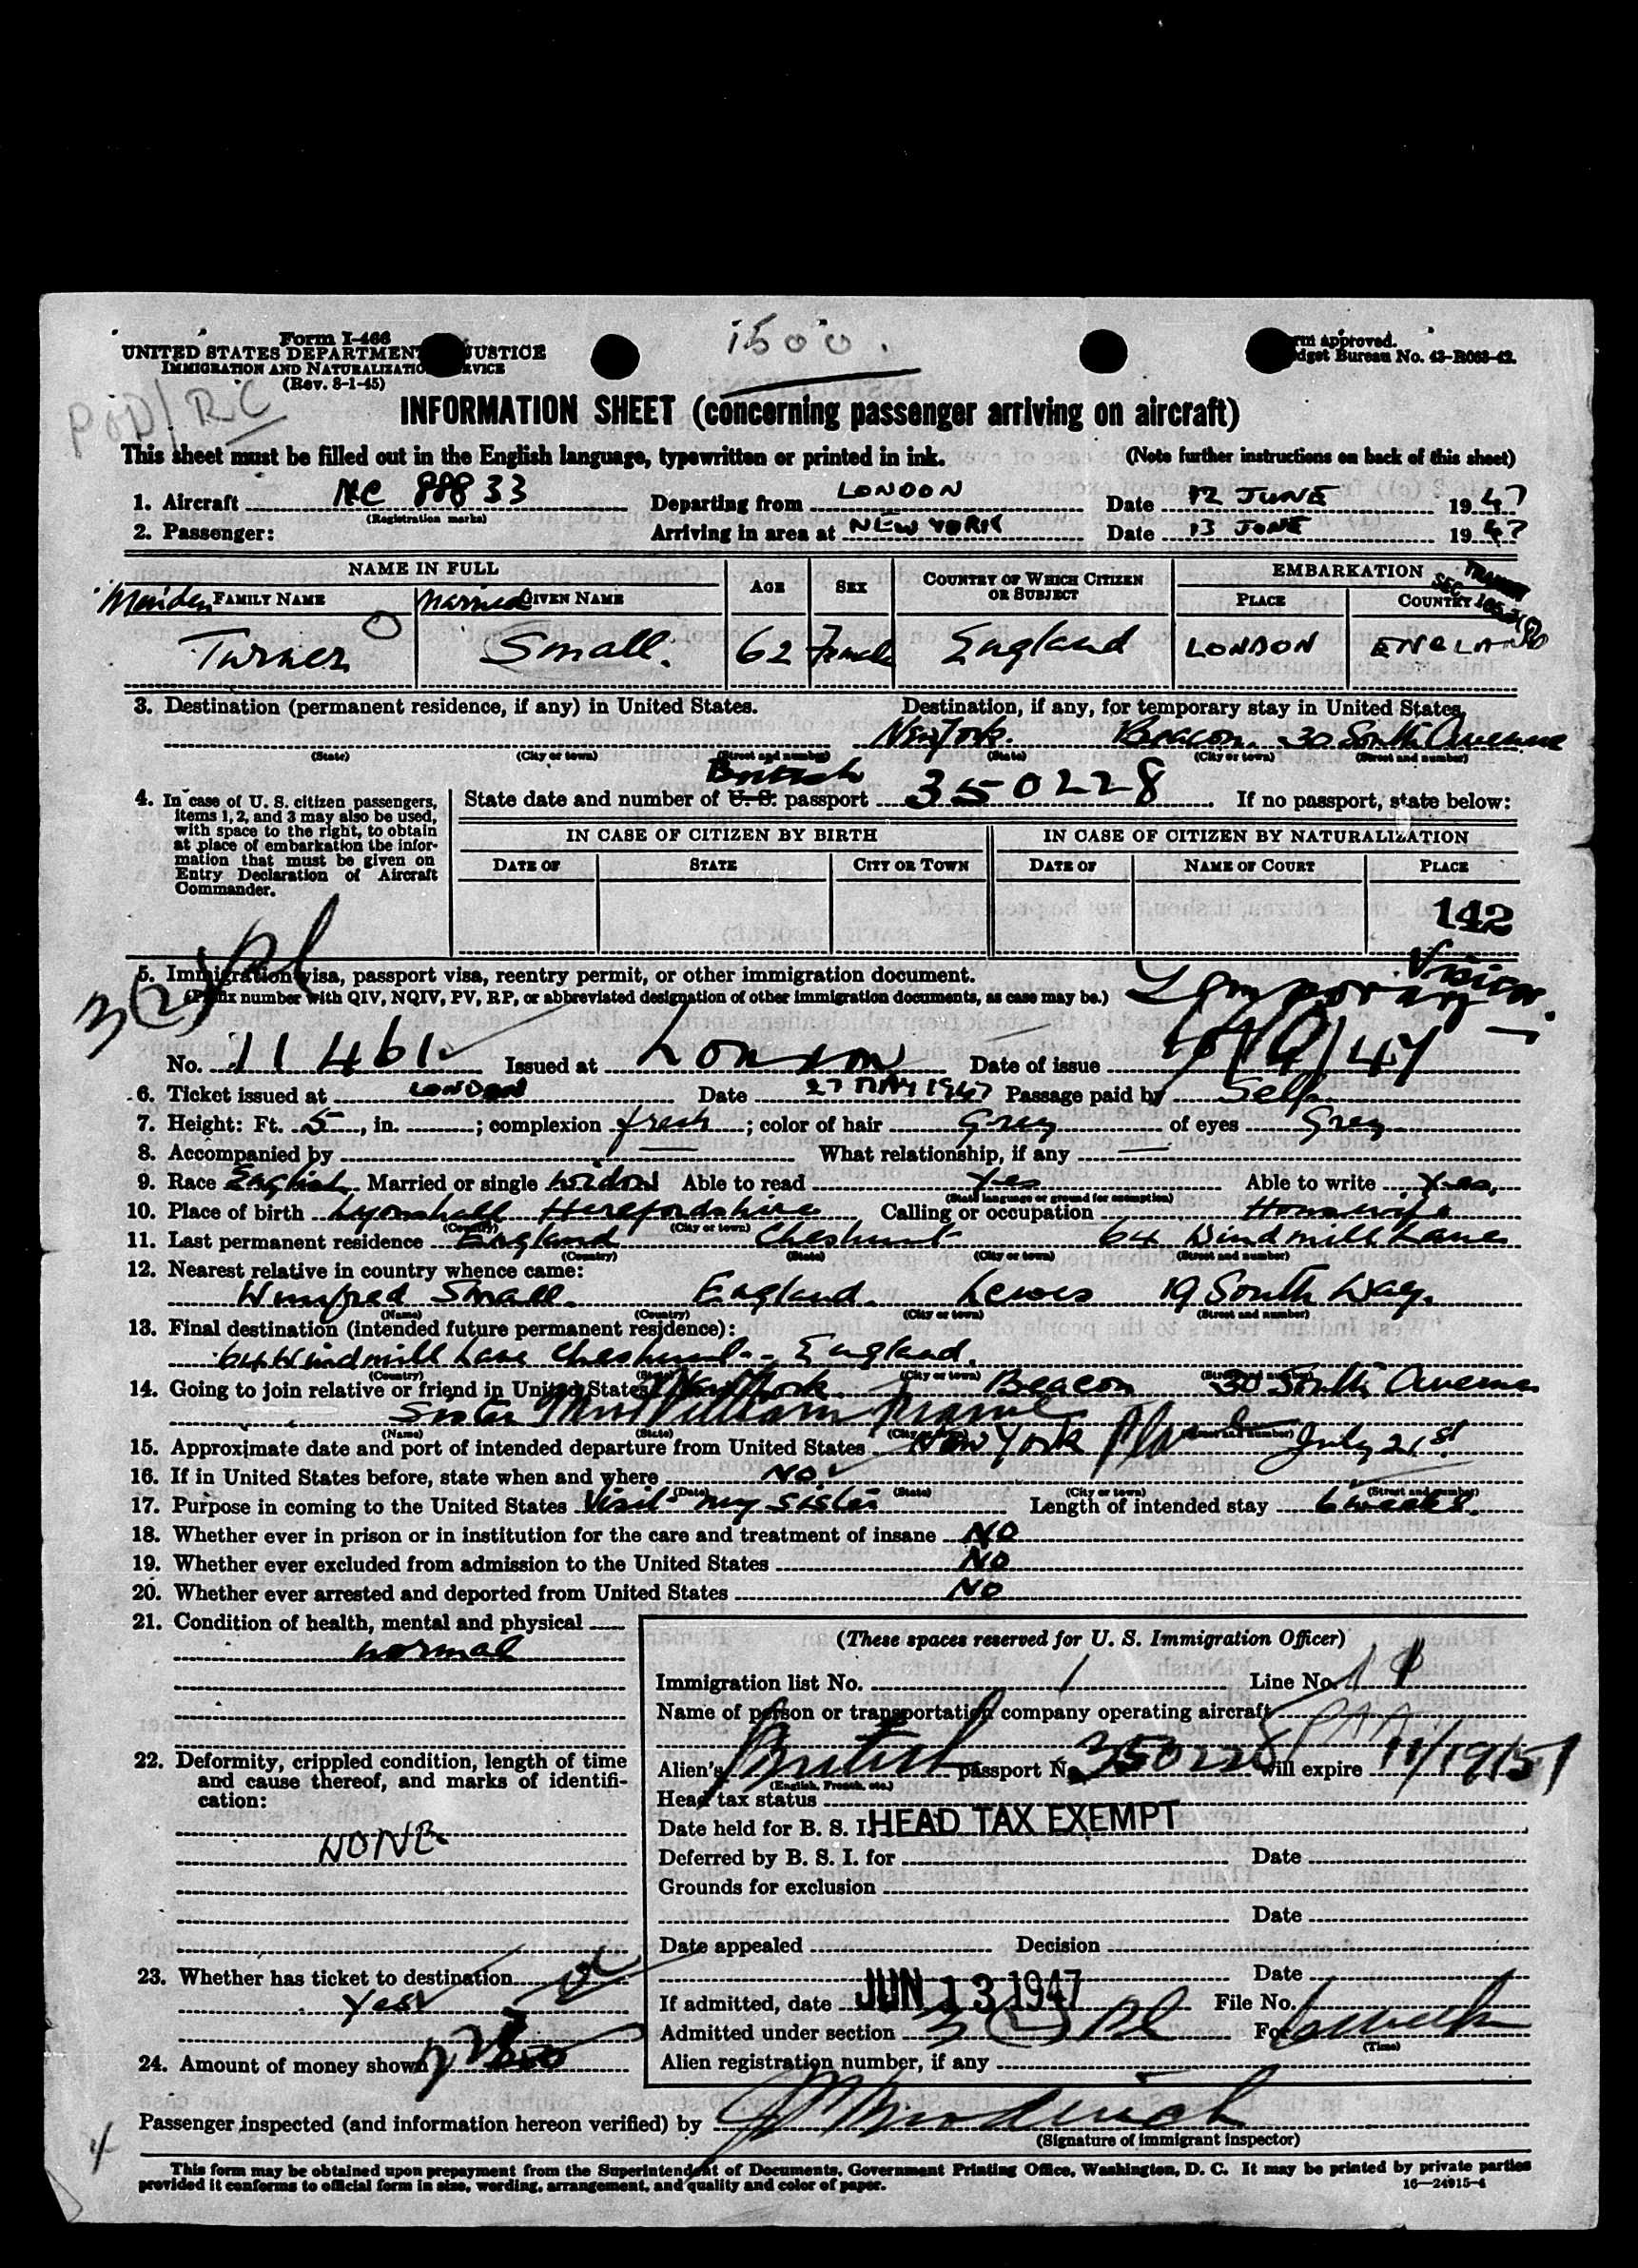 1500.
Form I-466
UNITED STATES DEPARTMENT JUSTICE
IMMIGRATION AND NATURALIZATIO RVICE
(Rev. 8-1-45)
rm approved.
dget Bureau No. 43-R063-42.
INFORMATION SHEET (concerning passenger arriving on aircraft)
This sheet must be filled out in the English language, typewritten or printed in ink. (Note further instructions on back of this sheet)
1. Aircraft NC 88833 Departing from LONDON Date 12 JUNE 1947
(Registration marks)
2. Passenger: Arriving in area at NEW YORK Date 13 JUNE 1947
NAME IN FULL AGE SEX COUNTRY OF WHICH CITIZEN OR SUBJECT EMBARKATION
Maiden FAMILY NAME Married GIVEN NAME PLACE COUNTRY
Turner Small. 62 Female England LONDON ENGLAND
3. Destination (permanent residence, if any) in United States. Destination, if any, for temporary stay in United States.
New York. Beacon. 30 South Avenue
(State) (City or town) (Street and number) (State) (City or town) (Street and number)
British
4. In case of U. S. citizen passengers, items 1, 2, and 3 may also be used, with space to the right, to obtain at place of embarkation the information that must be given on Entry Declaration of Aircraft Commander.
State date and number of U. S. passport 350228 If no passport, state below:
IN CASE OF CITIZEN BY BIRTH IN CASE OF CITIZEN BY NATURALIZATION
DATE OF STATE CITY OR TOWN DATE OF NAME OF COURT PLACE
142
5. Immigration visa, passport visa, reentry permit, or other immigration document.
(Prefix number with QIV, NQIV, PV, RP, or abbreviated designation of other immigration documents, as case may be.) Temporary Visitor.
3(2)
No. 11461 Issued at London Date of issue
6. Ticket issued at LONDON Date 27 MAY 1947 Passage paid by Self
7. Height: Ft. 5, in. ; complexion fresh ; color of hair Grey of eyes Grey
8. Accompanied by — What relationship, if any —
9. Race English Married or single widow Able to read Yes Able to write Yes.
(State language or ground for exemption)
10. Place of birth Lyonshall Herefordshire Calling or occupation Housewife
(Country) (City or town)
11. Last permanent residence England Cheshunt 64 Windmill Lane
(State) (City or town) (Street and number)
12. Nearest relative in country whence came:
Winifred Small. England. Lewes 19 South Way.
(Name) (Country) (City or town) (Street and number)
13. Final destination (intended future permanent residence):
64 Windmill Lane Cheshunt - England.
(Country) (State) (City or town) (Street and number)
14. Going to join relative or friend in United States New York. Beacon 30 South Avenue
Sister Mrs William
(Name) (State) (City or town) (Street and number)
15. Approximate date and port of intended departure from United States New York July 21st
16. If in United States before, state when and where No
(Date) (State) (City or town) (Street and number)
17. Purpose in coming to the United States Visit my sister Length of intended stay 6 weeks.
18. Whether ever in prison or in institution for the care and treatment of insane NO
19. Whether ever excluded from admission to the United States NO
20. Whether ever arrested and deported from United States NO
21. Condition of health, mental and physical
normal
22. Deformity, crippled condition, length of time and cause thereof, and marks of identification:
NONE
23. Whether has ticket to destination
Yes
24. Amount of money shown
(These spaces reserved for U. S. Immigration Officer)
Immigration list No. 1 Line No.
Name of person or transportation company operating aircraft
PAA
Alien's British passport No. 350228 Will expire 11/19/51
(English, French, etc.)
Head tax status
Date held for B. S. I. HEAD TAX EXEMPT
Deferred by B. S. I. for Date
Grounds for exclusion
Date
Date appealed Decision
Date
If admitted, date JUN 13 1947 File No.
Admitted under section 3(2) For 6 weeks
(Time)
Alien registration number, if any
Passenger inspected (and information hereon verified) by
(Signature of immigrant inspector)
This form may be obtained upon prepayment from the Superintendent of Documents, Government Printing Office, Washington, D. C. It may be printed by private parties
provided it conforms to official form in size, wording, arrangement, and quality and color of paper. 16—24915-4